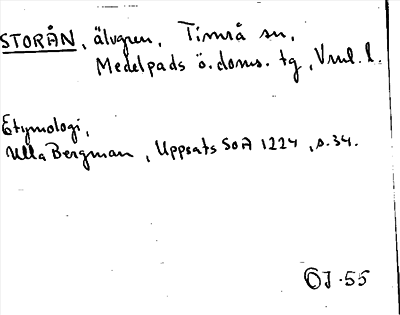 STORÅN, älvgren, Timrå sn,
Medelpads ö. doms. tg, Vnrl. l.
Etymologi,
Ulla Bergman, Uppsats SOA 1224, s. 34.
ÖJ-55